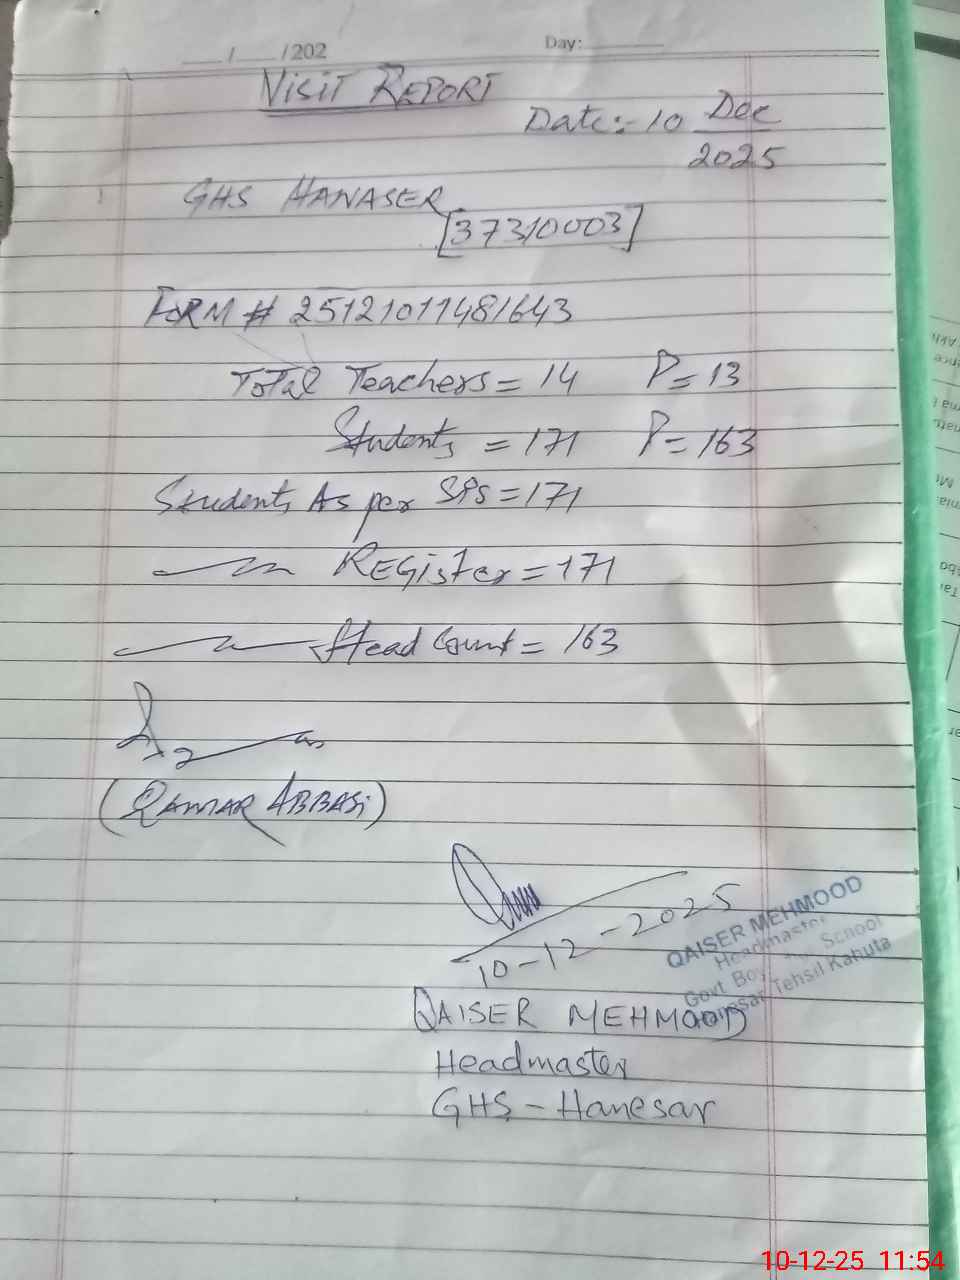 ___/___/202
Day:
VISIT REPORT
Date:- 10 Dec
2025
GHS HANASER
[37310003]
FORM # 25121011481643
Total Teachers = 14 P = 13
Students = 171 P = 163
Students As per SPS = 171
Register = 171
Head Count = 163
(QAMAR ABBASi)
10-12-2025
QAISER MEHMOOD
Headmaster
Govt Boy School
Tehsil Kahuta
QAISER MEHMOOD
Headmaster
GHS - Hanesar
10-12-25 11:54